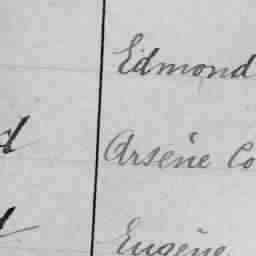 Edmond
Arsène Co
Eugène